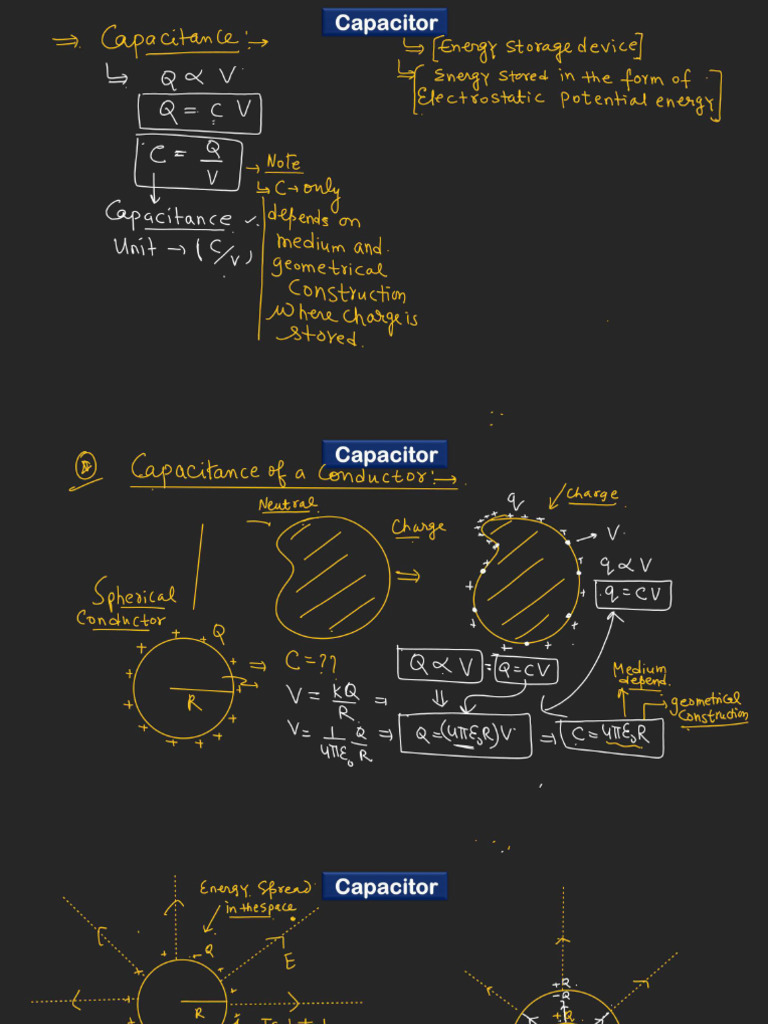 Capacitor
⇒ Capacitance:→
↳ Q ∝ V
Q = C V
C = Q/V
Capacitance
Unit → (C/V)
→ Note
↳ C → only
depends on
medium and
geometrical
construction
where charge is
stored.
↳ [Energy storage device]
↳ [Energy stored in the form of
Electrostatic potential energy]
Capacitor
Capacitance of a Conductor:→
Neutral
Charge
⇒
q
Charge
→ V
q ∝ V
q = CV
Spherical
Conductor
Q
R
⇒ C = ??
V = kQ/R ⇒
V = 1/4πε₀ Q/R ⇒
Q ∝ V = Q = CV
⇓
Q = (4πε₀R)V ⇒ C = 4πε₀R
Medium
depend.
geometrical
construction
Capacitor
Energy Spread
in the space
Q
E
E
R
+Q
-Q
+Q